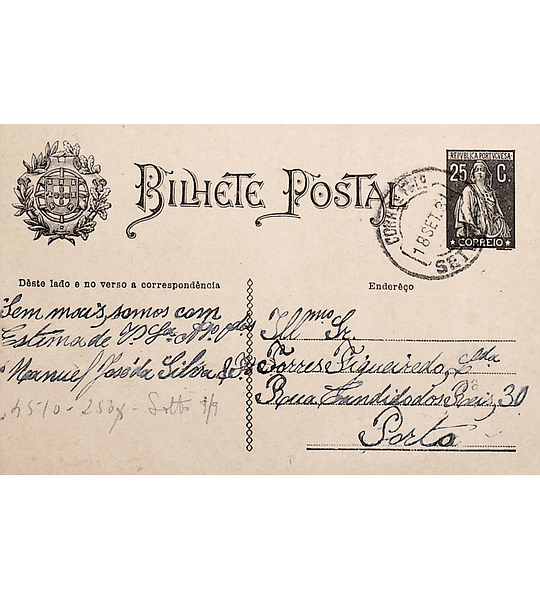 BILHETE POSTAL
REPUBLICA PORTUGUESA
25 C.
CORREIO
18 SET. 30
SET
Dêste lado e no verso a correspondência
Endereço
Sem mais, somos com
Estima de V. Sas
Manuel José da Silva &
4510 - 250x - 3/9
Ill mo Sr.
Torres Figueiredo, L da
Rua Candido dos Reis, 30
Porto